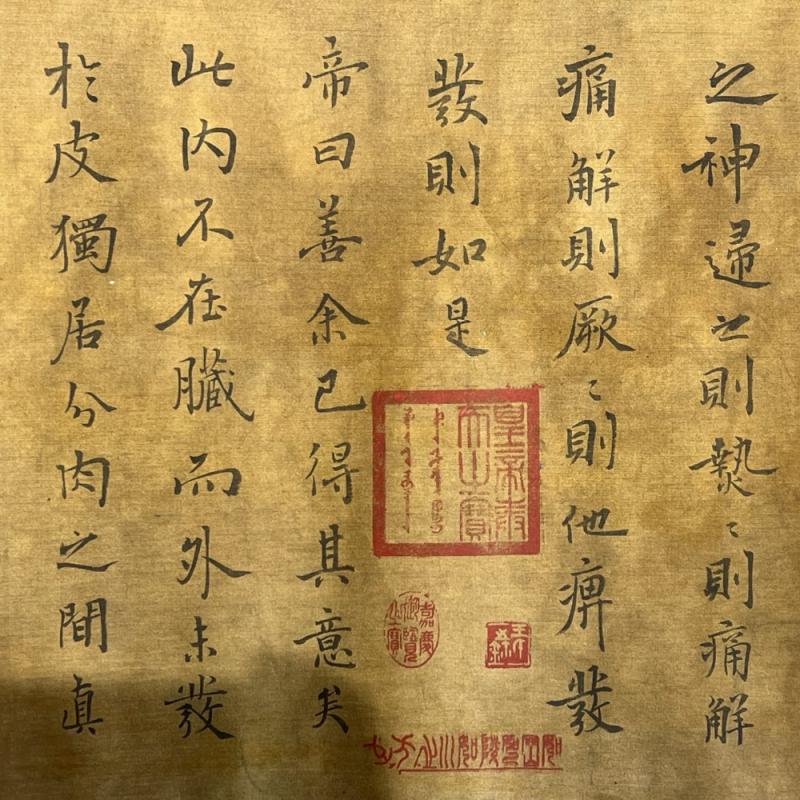 之神歸之則熱〻則痛解
痛解則厥〻則他痹發
發則如是
帝曰善余已得其意矣
此内不在臟而外未發
於皮獨居分肉之間真
嘉慶御覽之寶